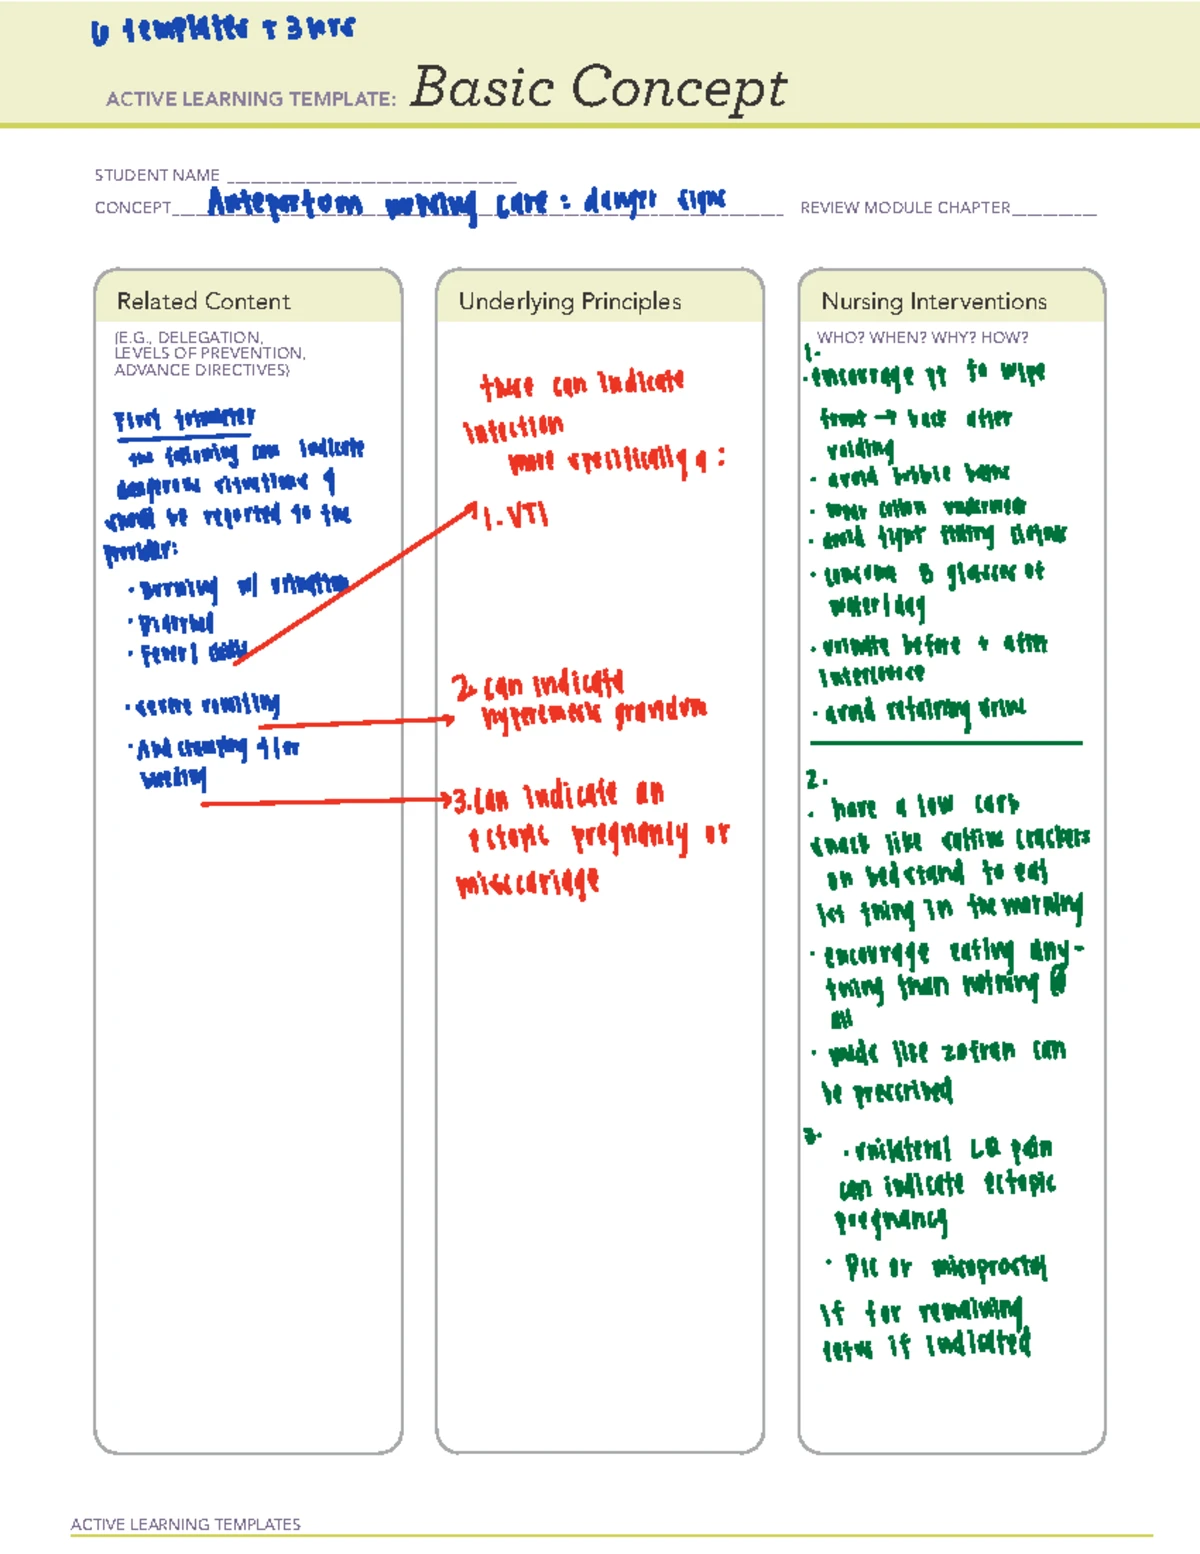 6 templates = 3 hrs
ACTIVE LEARNING TEMPLATE: Basic Concept
STUDENT NAME
CONCEPT Antepartum nursing care: danger signs
REVIEW MODULE CHAPTER
Related Content
(E.G., DELEGATION,
LEVELS OF PREVENTION,
ADVANCE DIRECTIVES)
First trimester
the following can indicate
dangerous situations &
should be reported to the
provider:
• Burning w/ urination
• Diarrhea
• Fever / chills
• severe vomiting
• Abd cramping &/or
bleeding
Underlying Principles
these can indicate
infection
more specifically a:
1. UTI
2. can indicate
hyperemesis gravidum
3. can indicate an
ectopic pregnancy or
misccariage
Nursing Interventions
WHO? WHEN? WHY? HOW?
1.
• encourage pt to wipe
front → back after
voiding
• avoid bubble baths
• wear cotton underwear
• avoid tight fitting clothes
• consume 8 glasses of
water/day
• urinate before + after
intercourse
• avoid retaining urine
2.
• have a low carb
snack like saltine crackers
on bedstand to eat
1st thing in the morning
• encourage eating any-
thing than nothing @
all
• meds like zofran can
be prescribed
3.
• unilateral LQ pain
can indicate ectopic
pregnancy
• D&C or misoprostol
if for remaining
fetus if indicated
ACTIVE LEARNING TEMPLATES